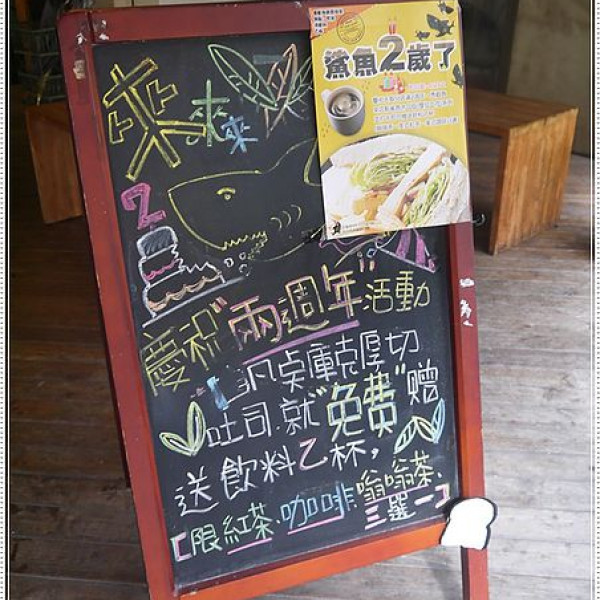 來來來
鯊魚2歲了
2
慶祝"兩週年"活動
凡點庫克厚切
吐司.就"免費"贈
送飲料乙杯,
【限紅茶.咖啡.嗡嗡茶.
三選一】